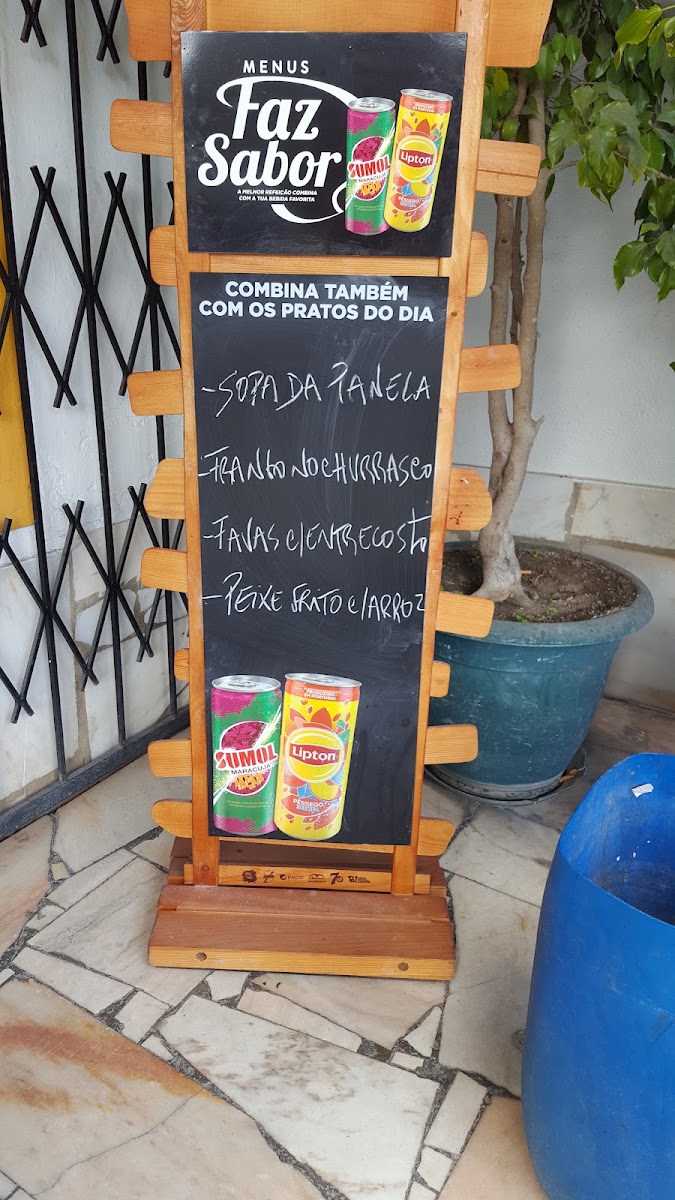 MENUS
Faz
Sabor
A MELHOR REFEIÇÃO COMBINA
COM A TUA BEBIDA FAVORITA
SUMOL
MARACUJÁ
Lipton
PÊSSEGO
COMBINA TAMBÉM
COM OS PRATOS DO DIA
-SOPA DA PANELA
-FRANGO NO CHURRASCO
-FAVAS C/ENTRECOSTO
-PEIXE FRITO C/ARROZ
SUMOL
MARACUJÁ
PRODUZIDO
EM PORTUGAL
Lipton
PÊSSEGO
pepsi
7